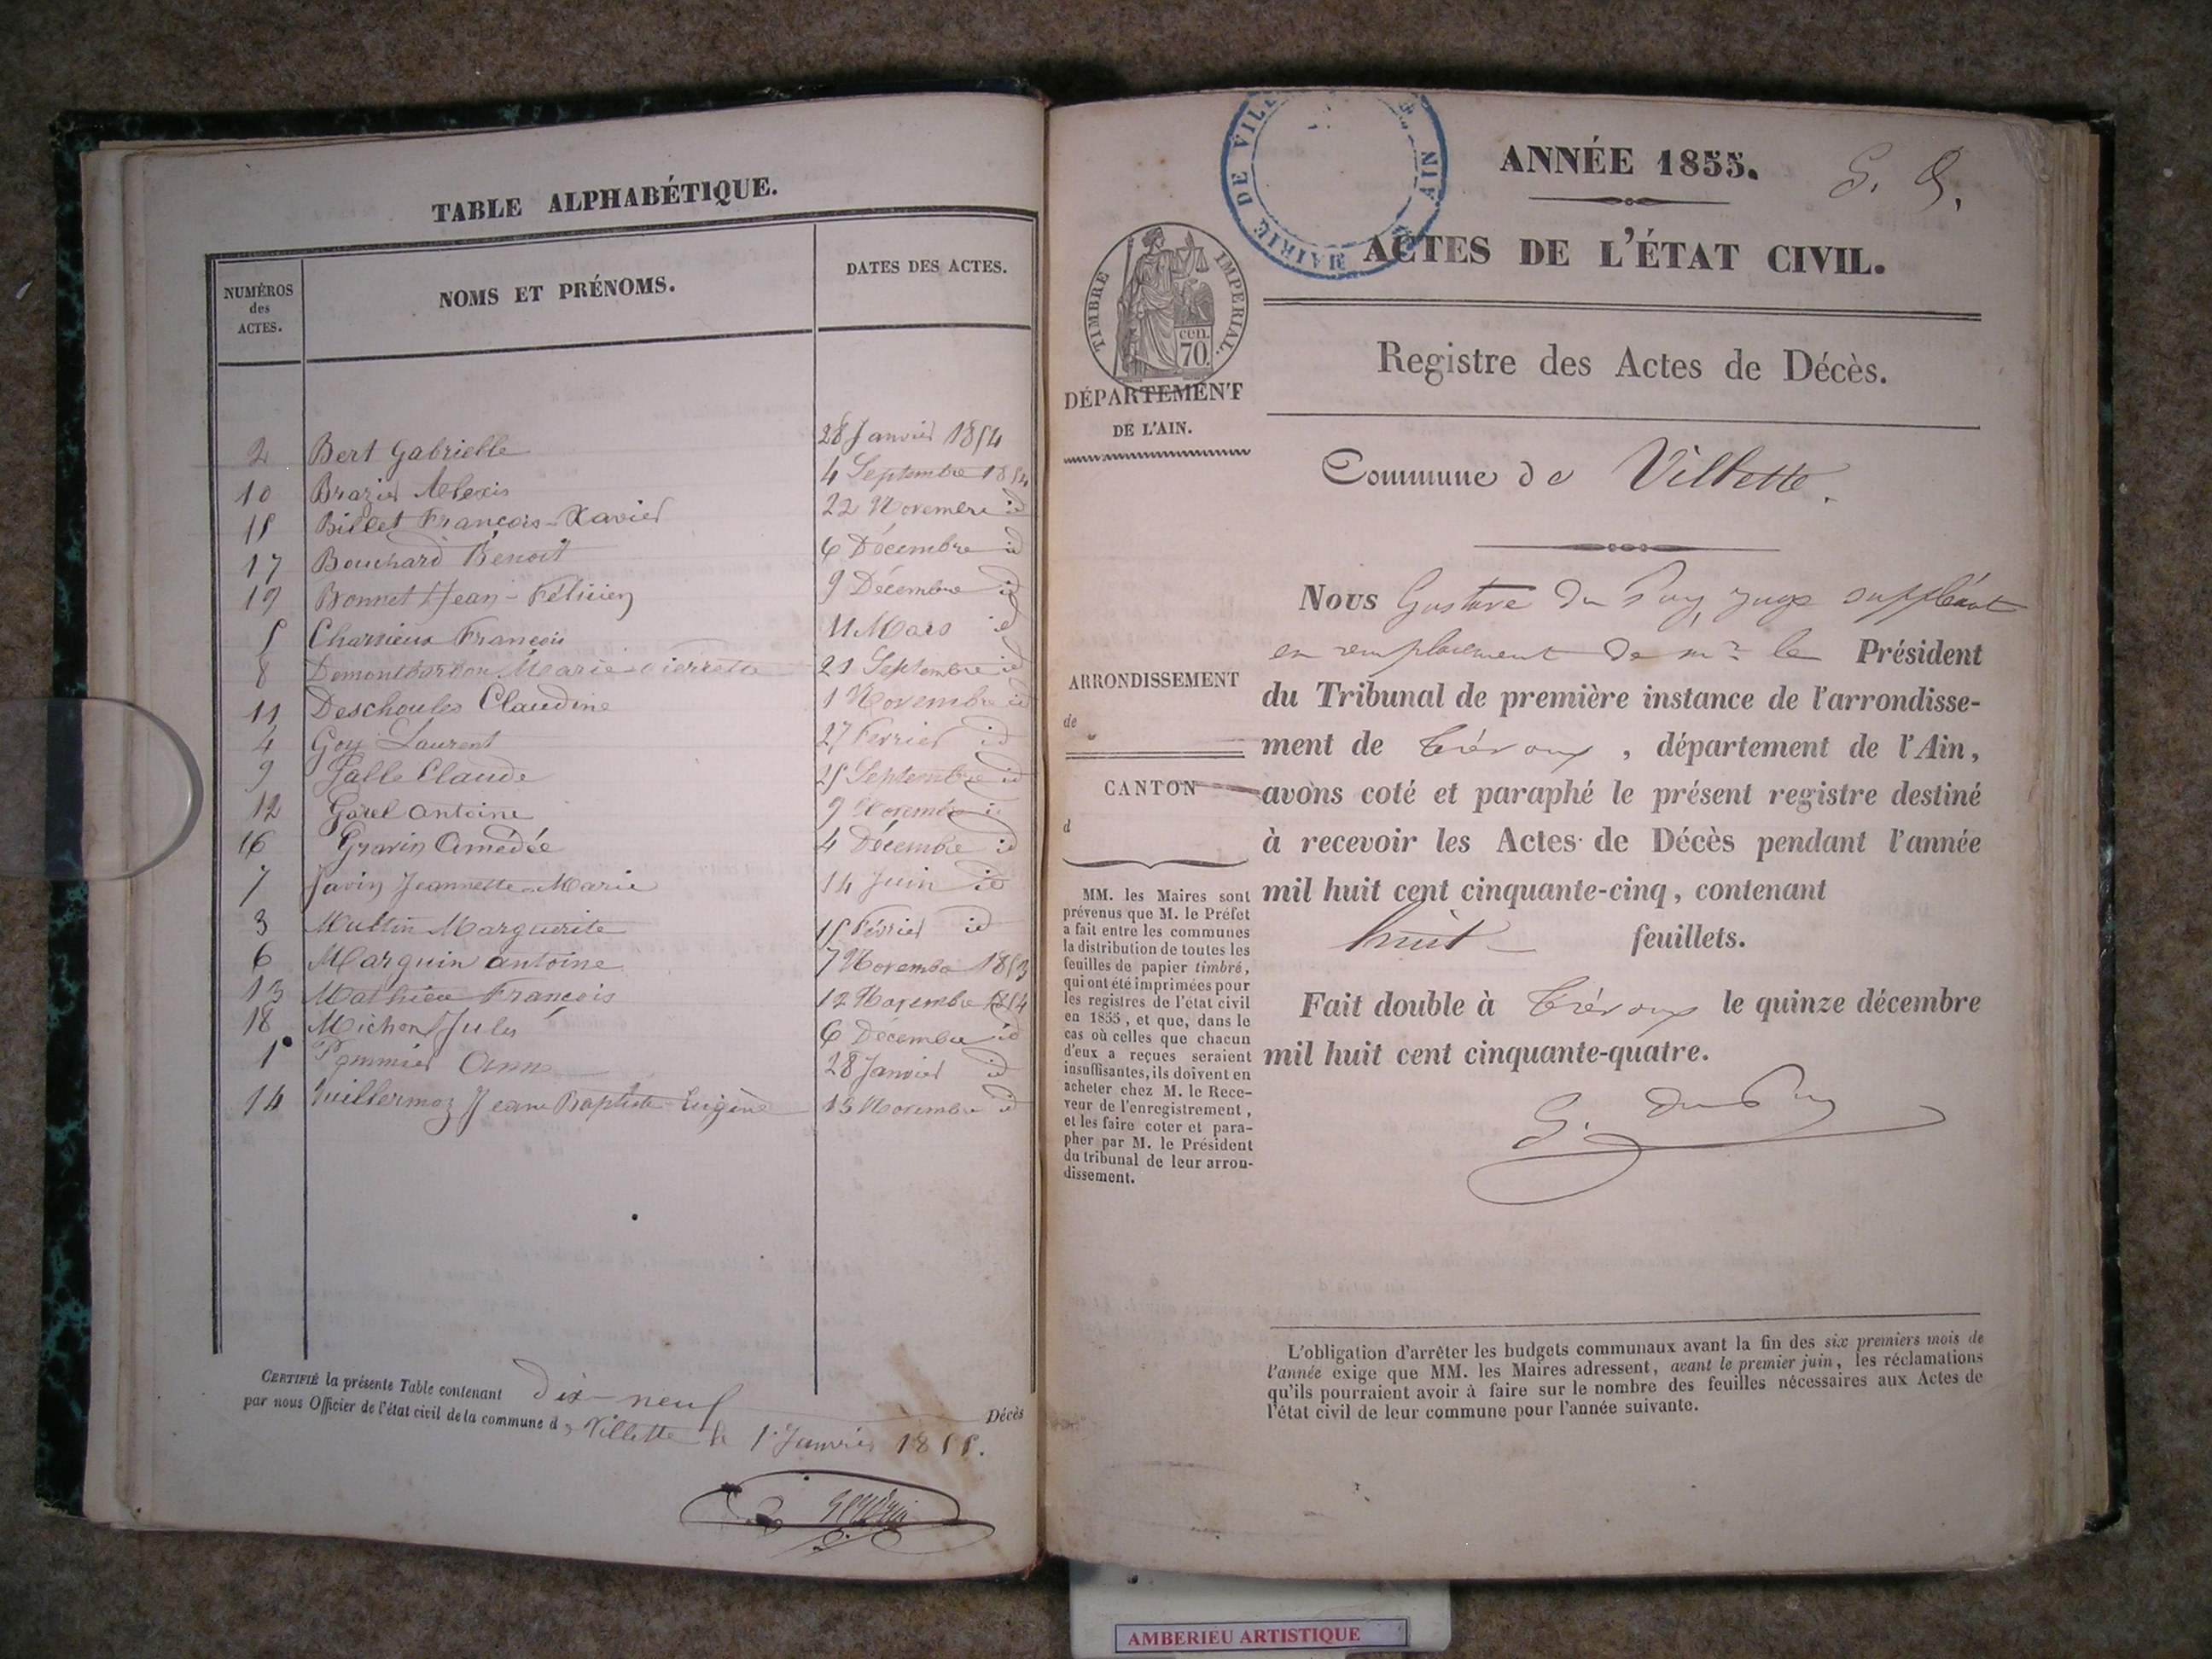 TABLE ALPHABÉTIQUE.
NUMÉROS
des
ACTES.
NOMS ET PRÉNOMS.
DATES DES ACTES.
2 Bert Gabrielle 28 Janvier 1854
10 Brazier Alexis 4 Septembre 1854
15 Billet François-Xavier 22 Novembre id
17 Bouchard Benoit 6 Décembre id
19 Bonnet Jean-Félicien 9 Décembre id
5 Charvieux François 11 Mars id
8 Demontbordon Marie Pierrette 21 Septembre id
11 Deschoules Claudine 1 Novembre id
4 Goy Laurent 27 Fevrier id
9 Galle Claude 25 Septembre id
12 Garel antoine 9 Novembre id
16 Gravin Amédée 4 Décembre id
7 Javin Jeannette Marie 14 Juin id
3 Multin Marguerite 15 Février id
6 Marguin antoine 7 Novembre 1853
13 Mathieu François 12 Novembre 1854
18 Michon Jules 6 Decembre id
1 Pommier Anne 28 Janvier id
14 Vuillermoz Jean Baptiste Eugène 13 Novembre id
CERTIFIÉ la présente Table contenant dix-neuf Décès
par nous Officier de l'état civil de la commune de Villette le 1er Janvier 1855.
MAIRIE DE VILL
AIN
ANNÉE 1855.
G. D.
ACTES DE L'ÉTAT CIVIL.
TIMBRE IMPERIAL.
cen.
70.
DÉPARTEMENT
DE L'AIN.
Registre des Actes de Décès.
Commune de Villette.
Nous Gustave du Puy, juge suppléant
en remplacement de mr le Président
du Tribunal de première instance de l'arrondisse-
ment de Trévoux, département de l'Ain,
avons coté et paraphé le présent registre destiné
à recevoir les Actes de Décès pendant l'année
mil huit cent cinquante-cinq, contenant
huit feuillets.
Fait double à Trévoux le quinze décembre
mil huit cent cinquante-quatre.
G. du Puy
ARRONDISSEMENT
de
CANTON
d
MM. les Maires sont
prévenus que M. le Préfet
a fait entre les communes
la distribution de toutes les
feuilles de papier timbré,
qui ont été imprimées pour
les registres de l'état civil
en 1855, et que, dans le
cas où celles que chacun
d'eux a reçues seraient
insuffisantes, ils doivent en
acheter chez M. le Rece-
veur de l'enregistrement,
et les faire coter et para-
pher par M. le Président
du tribunal de leur arron-
dissement.
L'obligation d'arrêter les budgets communaux avant la fin des six premiers mois de
l'année exige que MM. les Maires adressent, avant le premier juin, les réclamations
qu'ils pourraient avoir à faire sur le nombre des feuilles nécessaires aux Actes de
l'état civil de leur commune pour l'année suivante.
AMBERIEU ARTISTIQUE